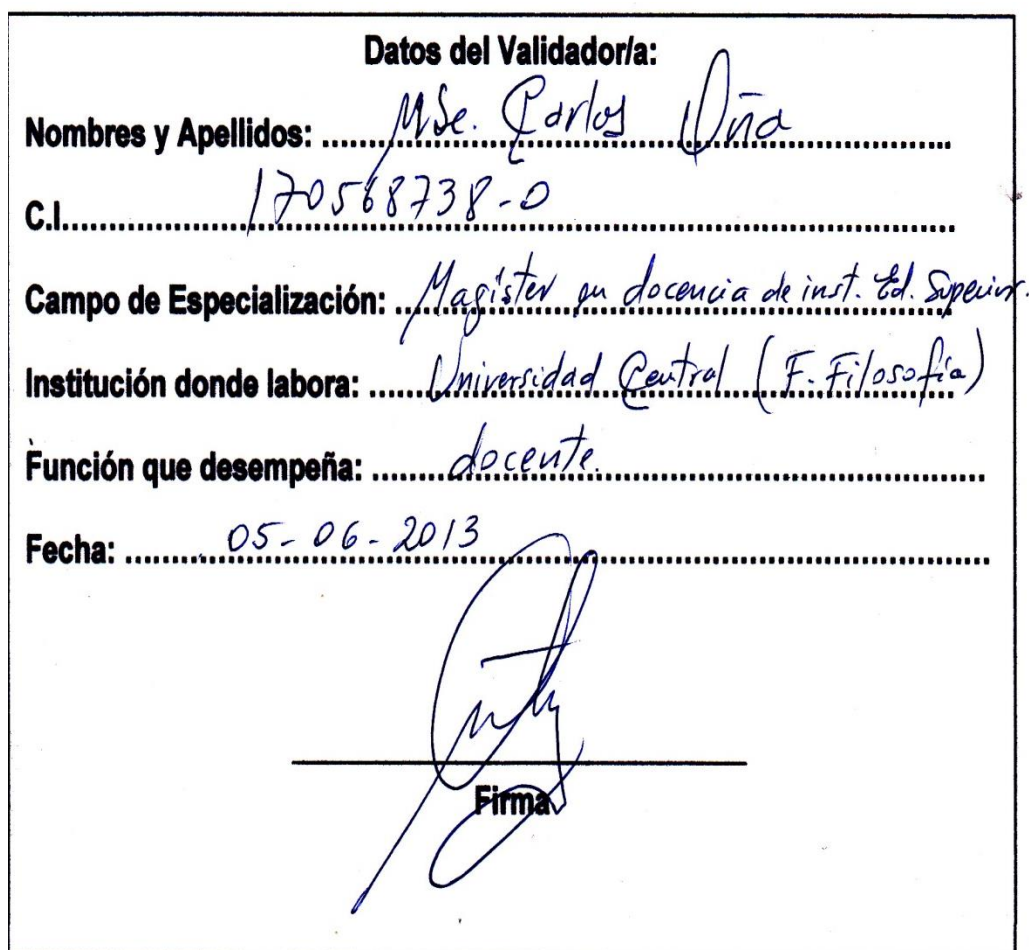 Datos del Validador/a:
Nombres y Apellidos: MSc. Carlos Oña
C.I. 170568738-0
Campo de Especialización: Magíster en docencia de inst. Ed. Superior.
Institución donde labora: Universidad Central (F. Filosofía)
Función que desempeña: docente.
Fecha: 05-06-2013
Firma